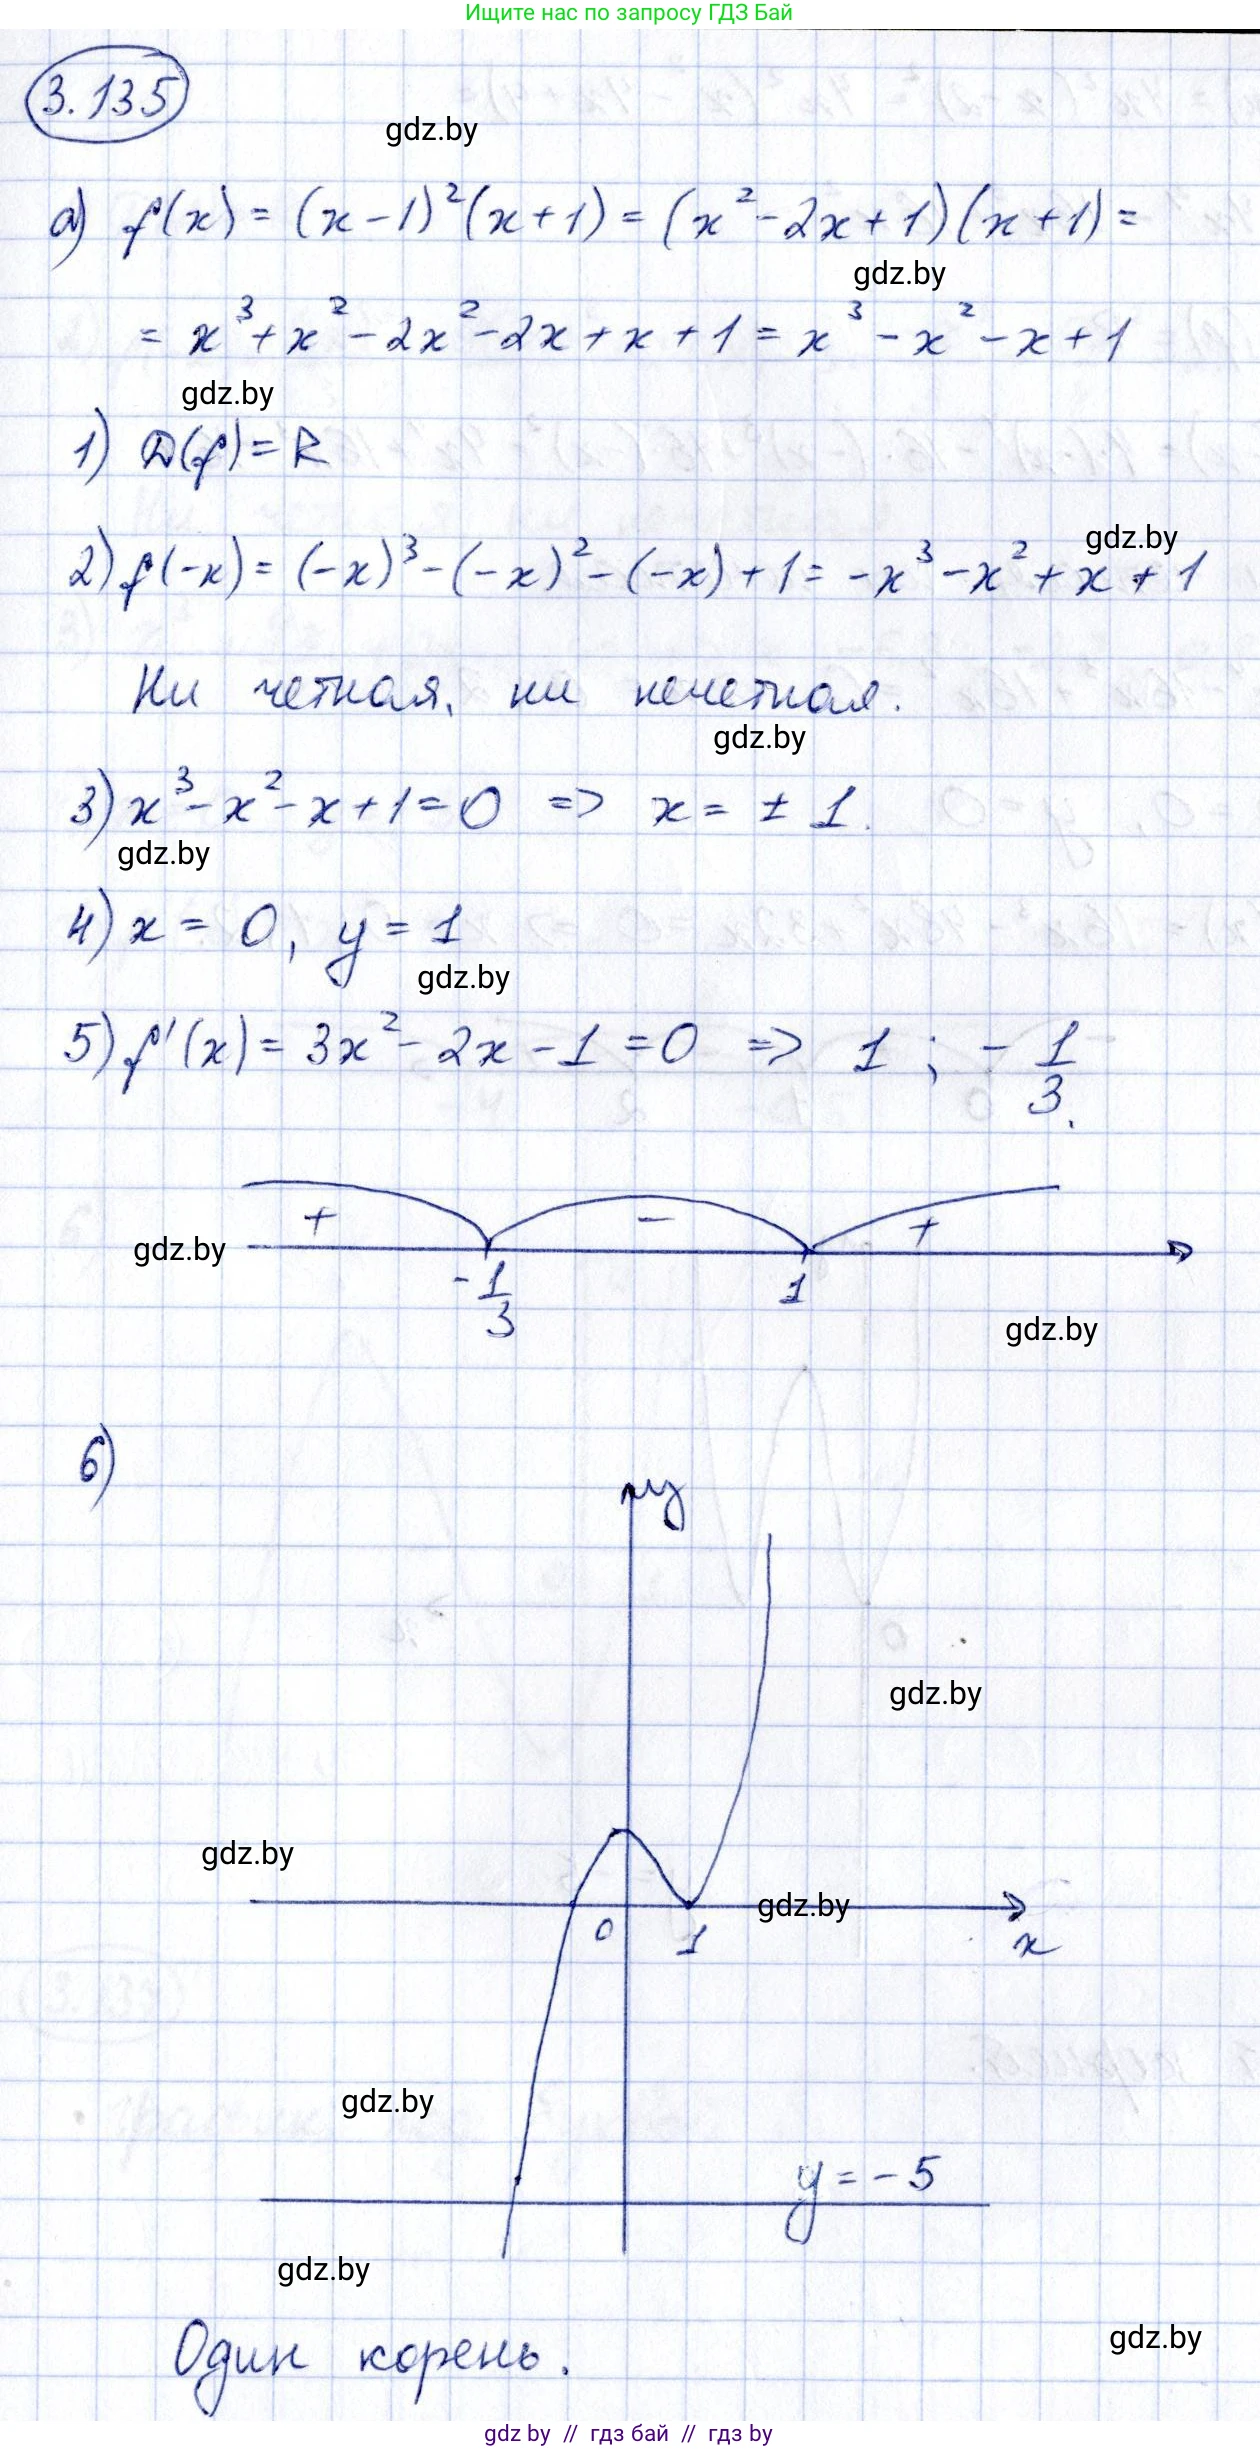 Ищите нас по запросу ГДЗ Бай
3.135
gdz.by
а) f(x) = (x-1)²(x+1) = (x²-2x+1)(x+1) =
gdz.by
= x³+x²-2x²-2x+x+1 = x³-x²-x+1
gdz.by
1) D(f) = R
gdz.by
2) f(-x) = (-x)³-(-x)²-(-x)+1 = -x³-x²+x+1
Ни четная, ни нечетная.
gdz.by
3) x³-x²-x+1=0 => x = ± 1.
gdz.by
4) x = 0, y = 1
gdz.by
5) f'(x) = 3x²-2x-1 = 0 => 1 ; -1/3.
+ - +
gdz.by
-1/3 1
gdz.by
6)
y
gdz.by
gdz.by
gdz.by
0 1 x
gdz.by
y = -5
gdz.by
gdz.by
Один корень.
gdz by // гдз бай // гдз by